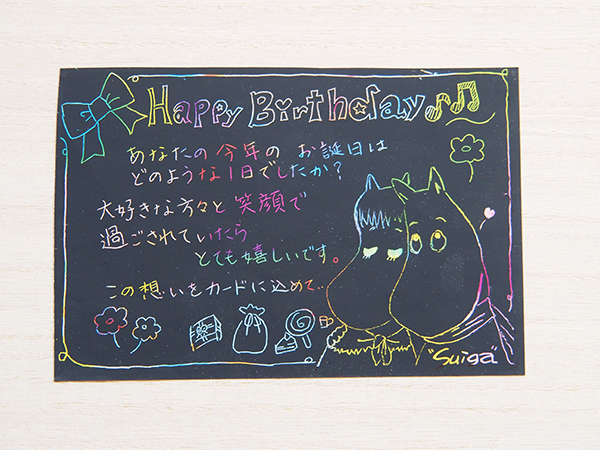 Happy Birthday
あなたの今年の お誕生日は
どのような1日でしたか?
大好きな方々と笑顔で
過ごされていたら
とても嬉しいです。
この想いをカードに込めて…
"Suiga"